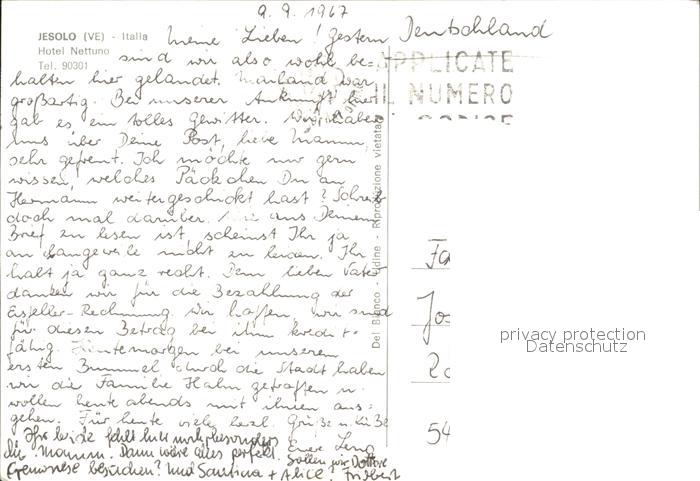 9. 9. 1967
JESOLO (VE) - Italia
Hotel Nettuno
Tel. 90301
Deutschland
Meine Lieben! Gestern
sind wir also wohl be=
halten hier gelandet. Mailand war
großartig. Bei unserer Ankunft hier
gab es ein tolles Gewitter. Wir haben
uns über Deine Post, liebe Mamm,
sehr gefreut. Ich möchte nur gern
wissen, welches Päckchen Du an
Hermann weitergeschickt hast? Schreib
doch mal darüber. Wie aus Deinem
Brief zu lesen ist, scheinst Ihr ja
an Langeweile nicht zu leiden. Ihr
habt ja ganz recht. Dem lieben Vater
danken wir für die Bezahlung der
Rechnung. Wir hoffen, wir sind
für diesen Betrag bei ihm kredit=
fähig. Heutemorgen bei unserem
ersten Bummel durch die Stadt haben
wir die Familie Hahn getroffen u.
wollen heute abends mit ihnen aus=
gehen. Für heute viele herzl. Grüße u. Küße
Eure
Ihr beide fehlt hier besonders
die Mamm. Dann wäre alles perfekt. Sollen wir Dottore
Cremonese besuchen? Und + Alice. Fridbert
APPLICATE
IL NUMERO
CODICE
Del Bianco - Udine - Riproduzione vietata
Fa
Jo
54
privacy protection
Datenschutz